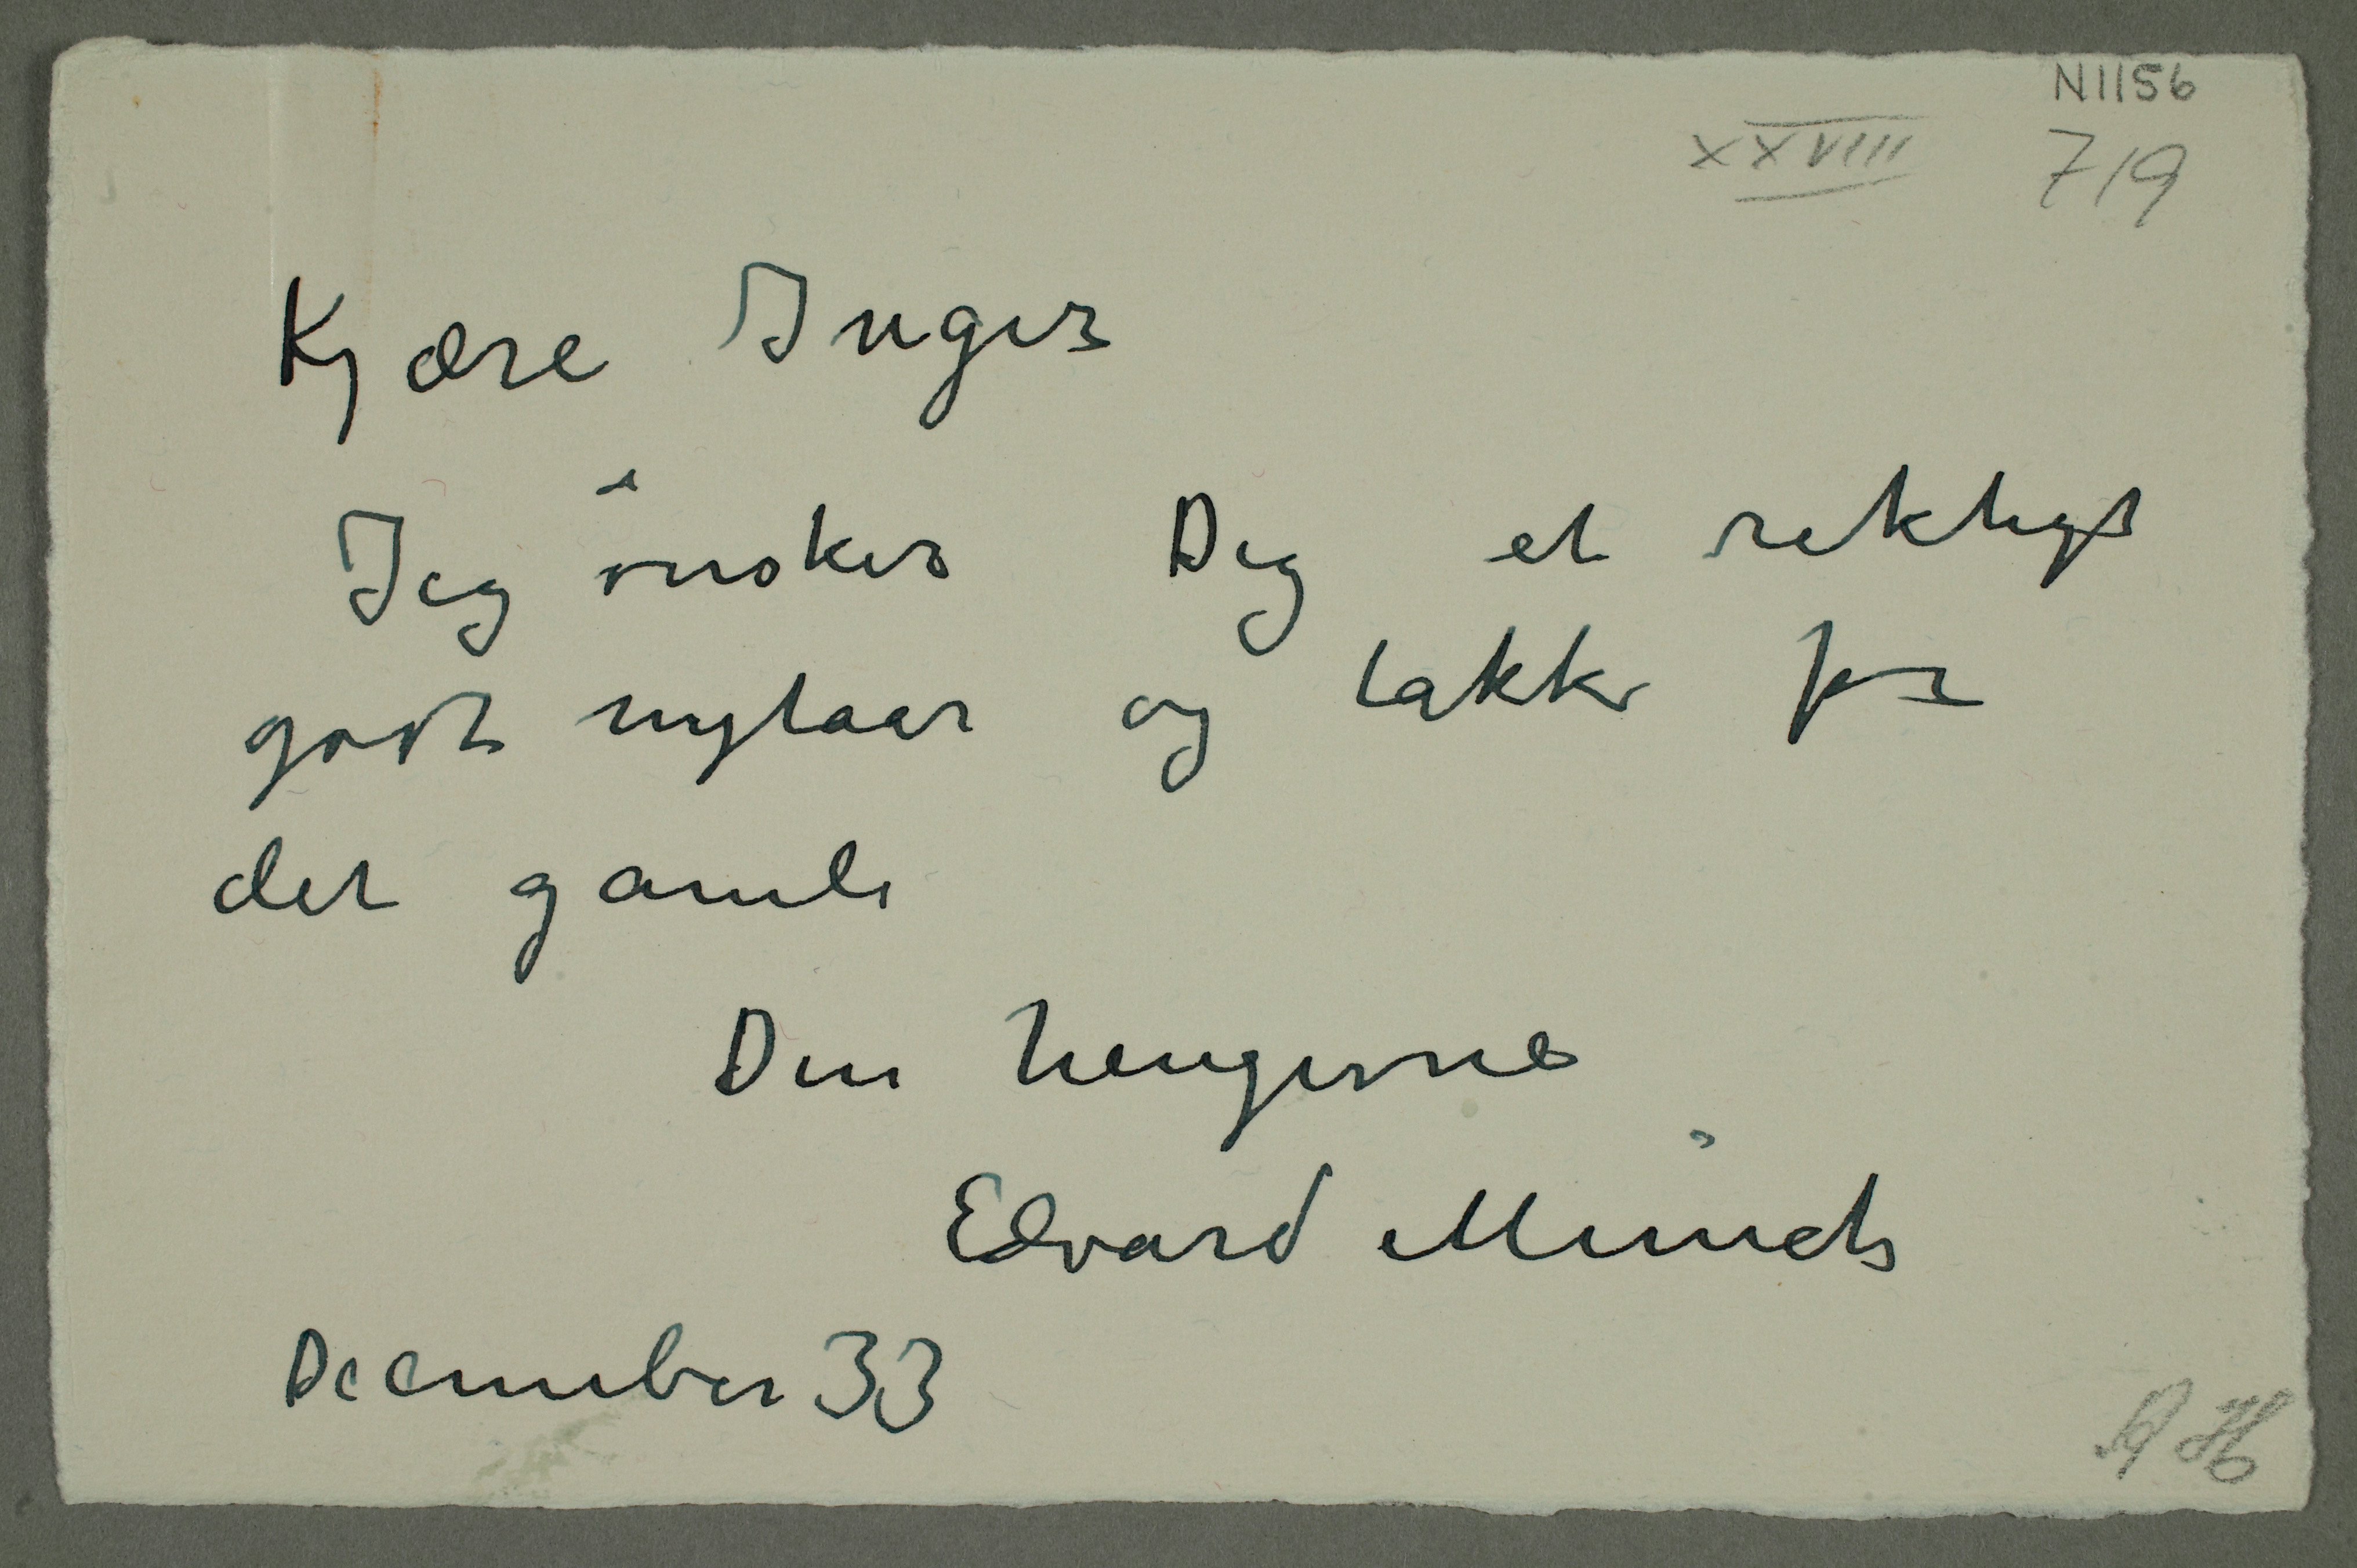 N1156
XXVIII 719
Kjære Inger
Jeg ønsker Dig et rektigt
godt nytaar og takker for
det gamle
Din hengivne
Edvard Munch
December 33